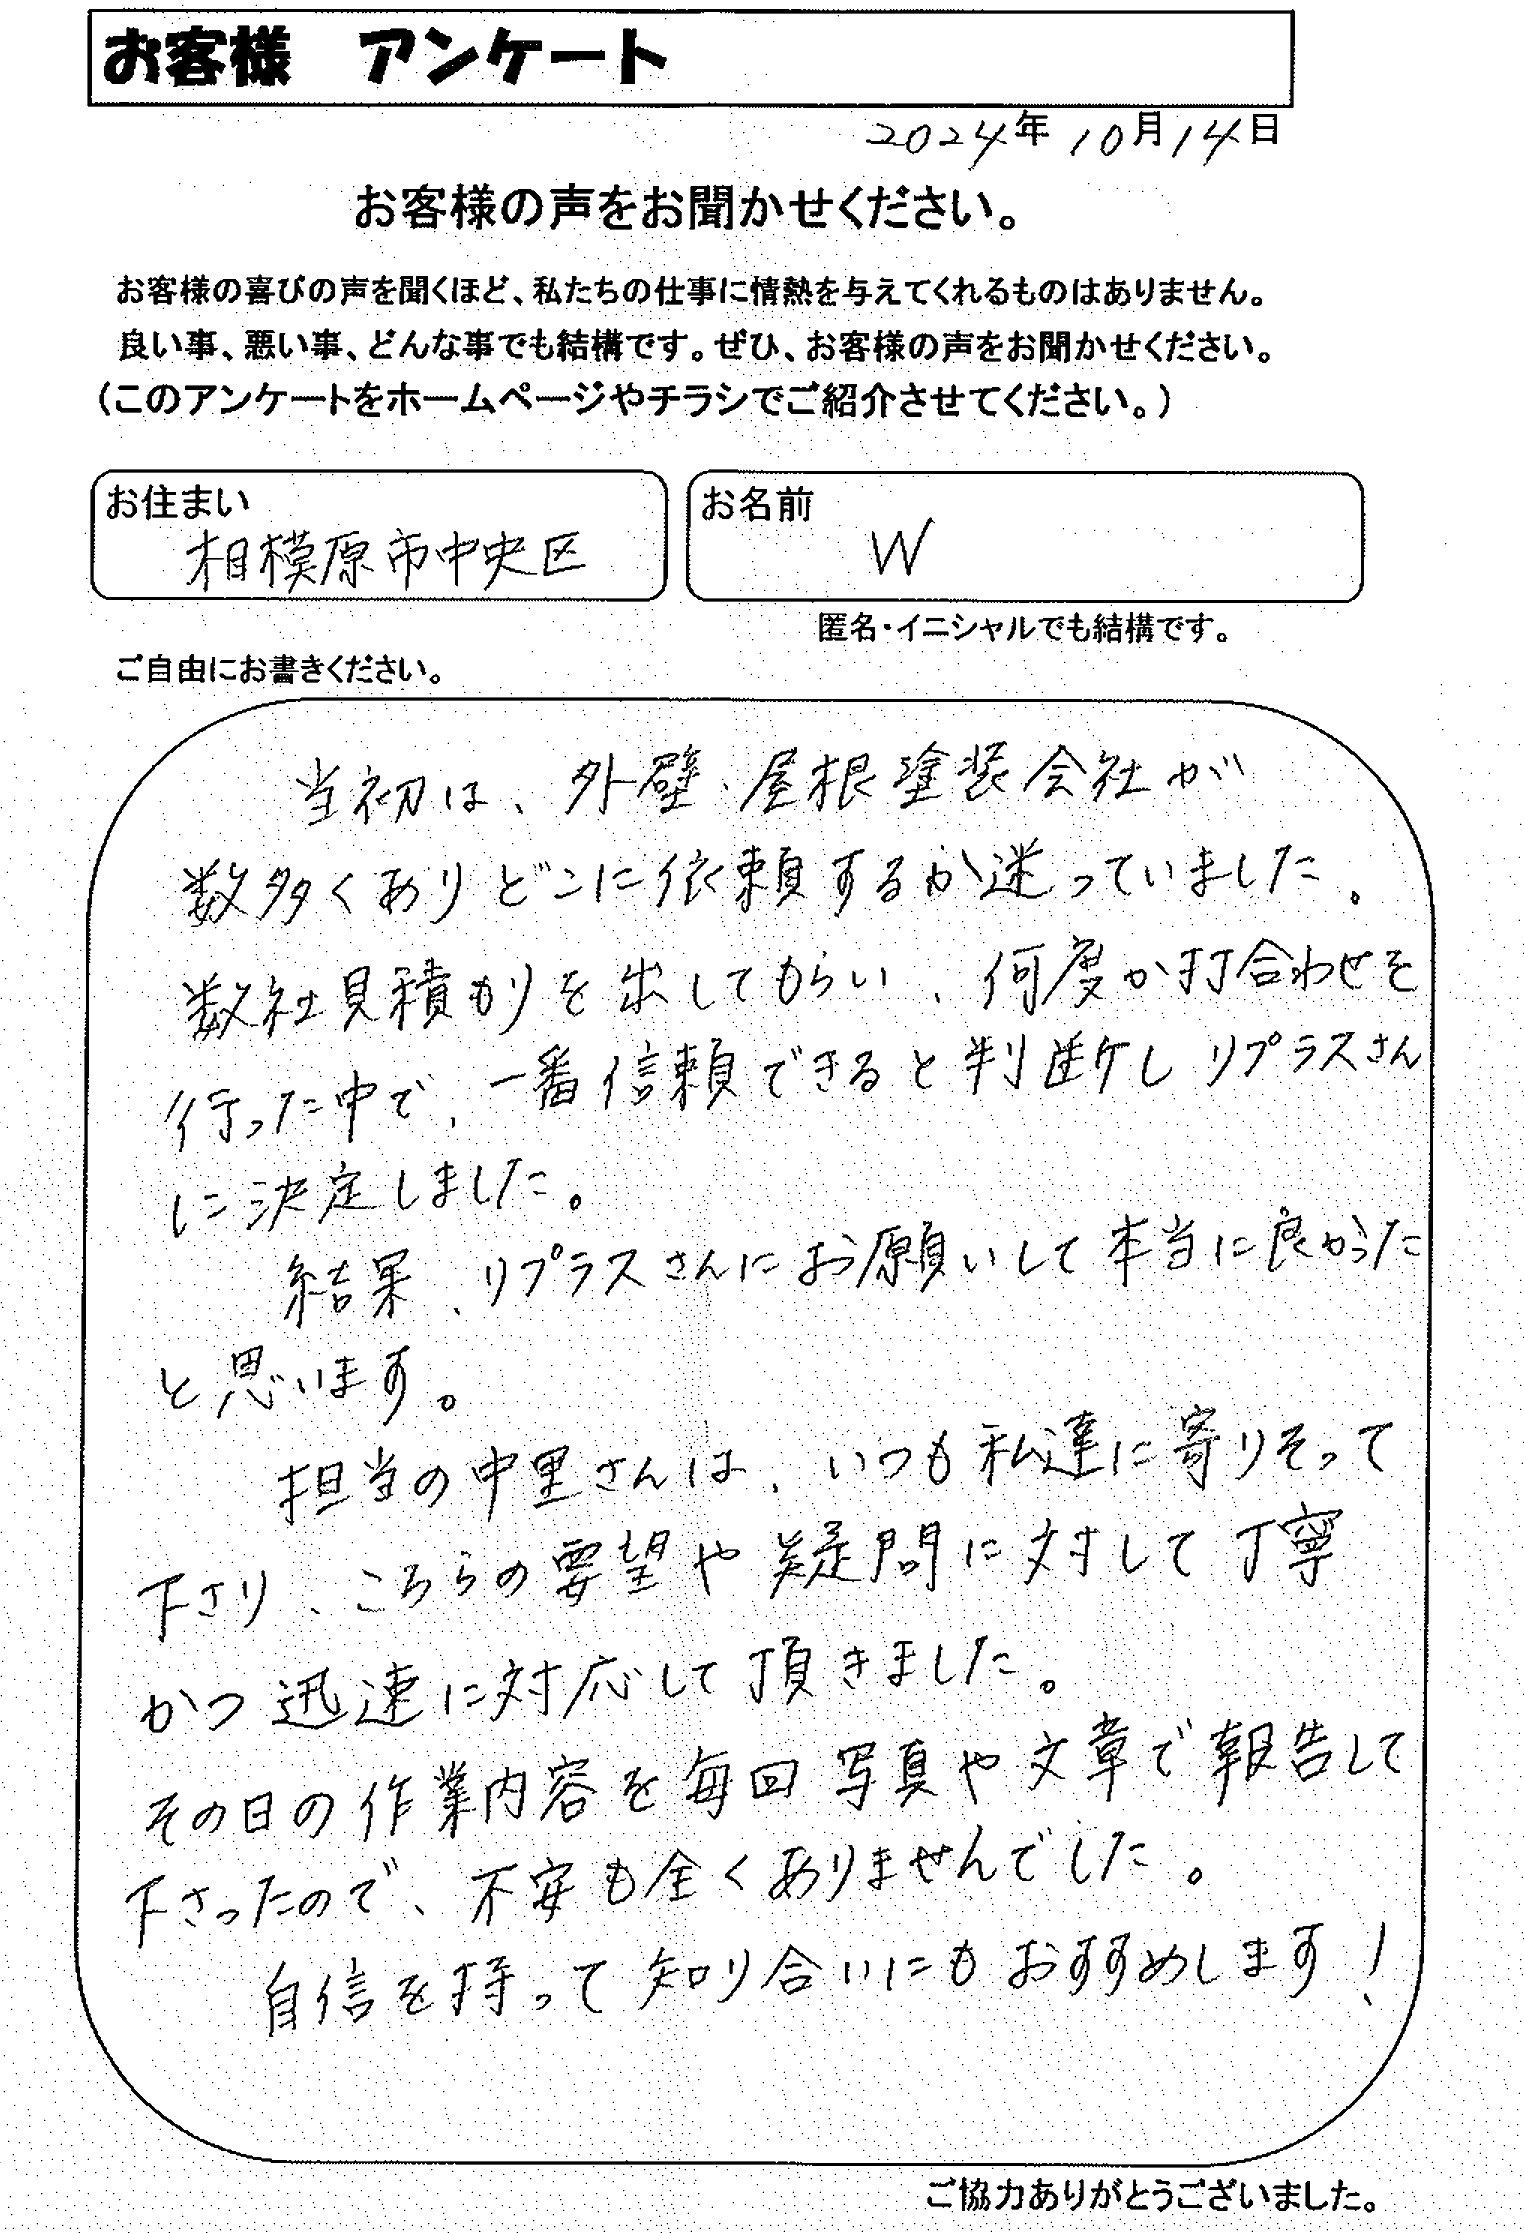 お客様　アンケート
2024年10月14日
お客様の声をお聞かせください。
お客様の喜びの声を聞くほど、私たちの仕事に情熱を与えてくれるものはありません。
良い事、悪い事、どんな事でも結構です。ぜひ、お客様の声をお聞かせください。
（このアンケートをホームページやチラシでご紹介させてください。）
お住まい
相模原市中央区
お名前
W
匿名・イニシャルでも結構です。
ご自由にお書きください。
当初は、外壁、屋根塗装会社が
数多くありどこに依頼するか迷っていました。
数社見積もりを出してもらい、何度か打合わせを
行った中で、一番信頼できると判断しリプラスさん
に決定しました。
結果、リプラスさんにお願いして本当に良かった
と思います。
担当の中里さんは、いつも私達に寄りそって
下さり、こちらの要望や疑問に対して丁寧
かつ迅速に対応して頂きました。
その日の作業内容を毎回写真や文章で報告して
下さったので、不安も全くありませんでした。
自信を持って知り合いにもおすすめします！
ご協力ありがとうございました。